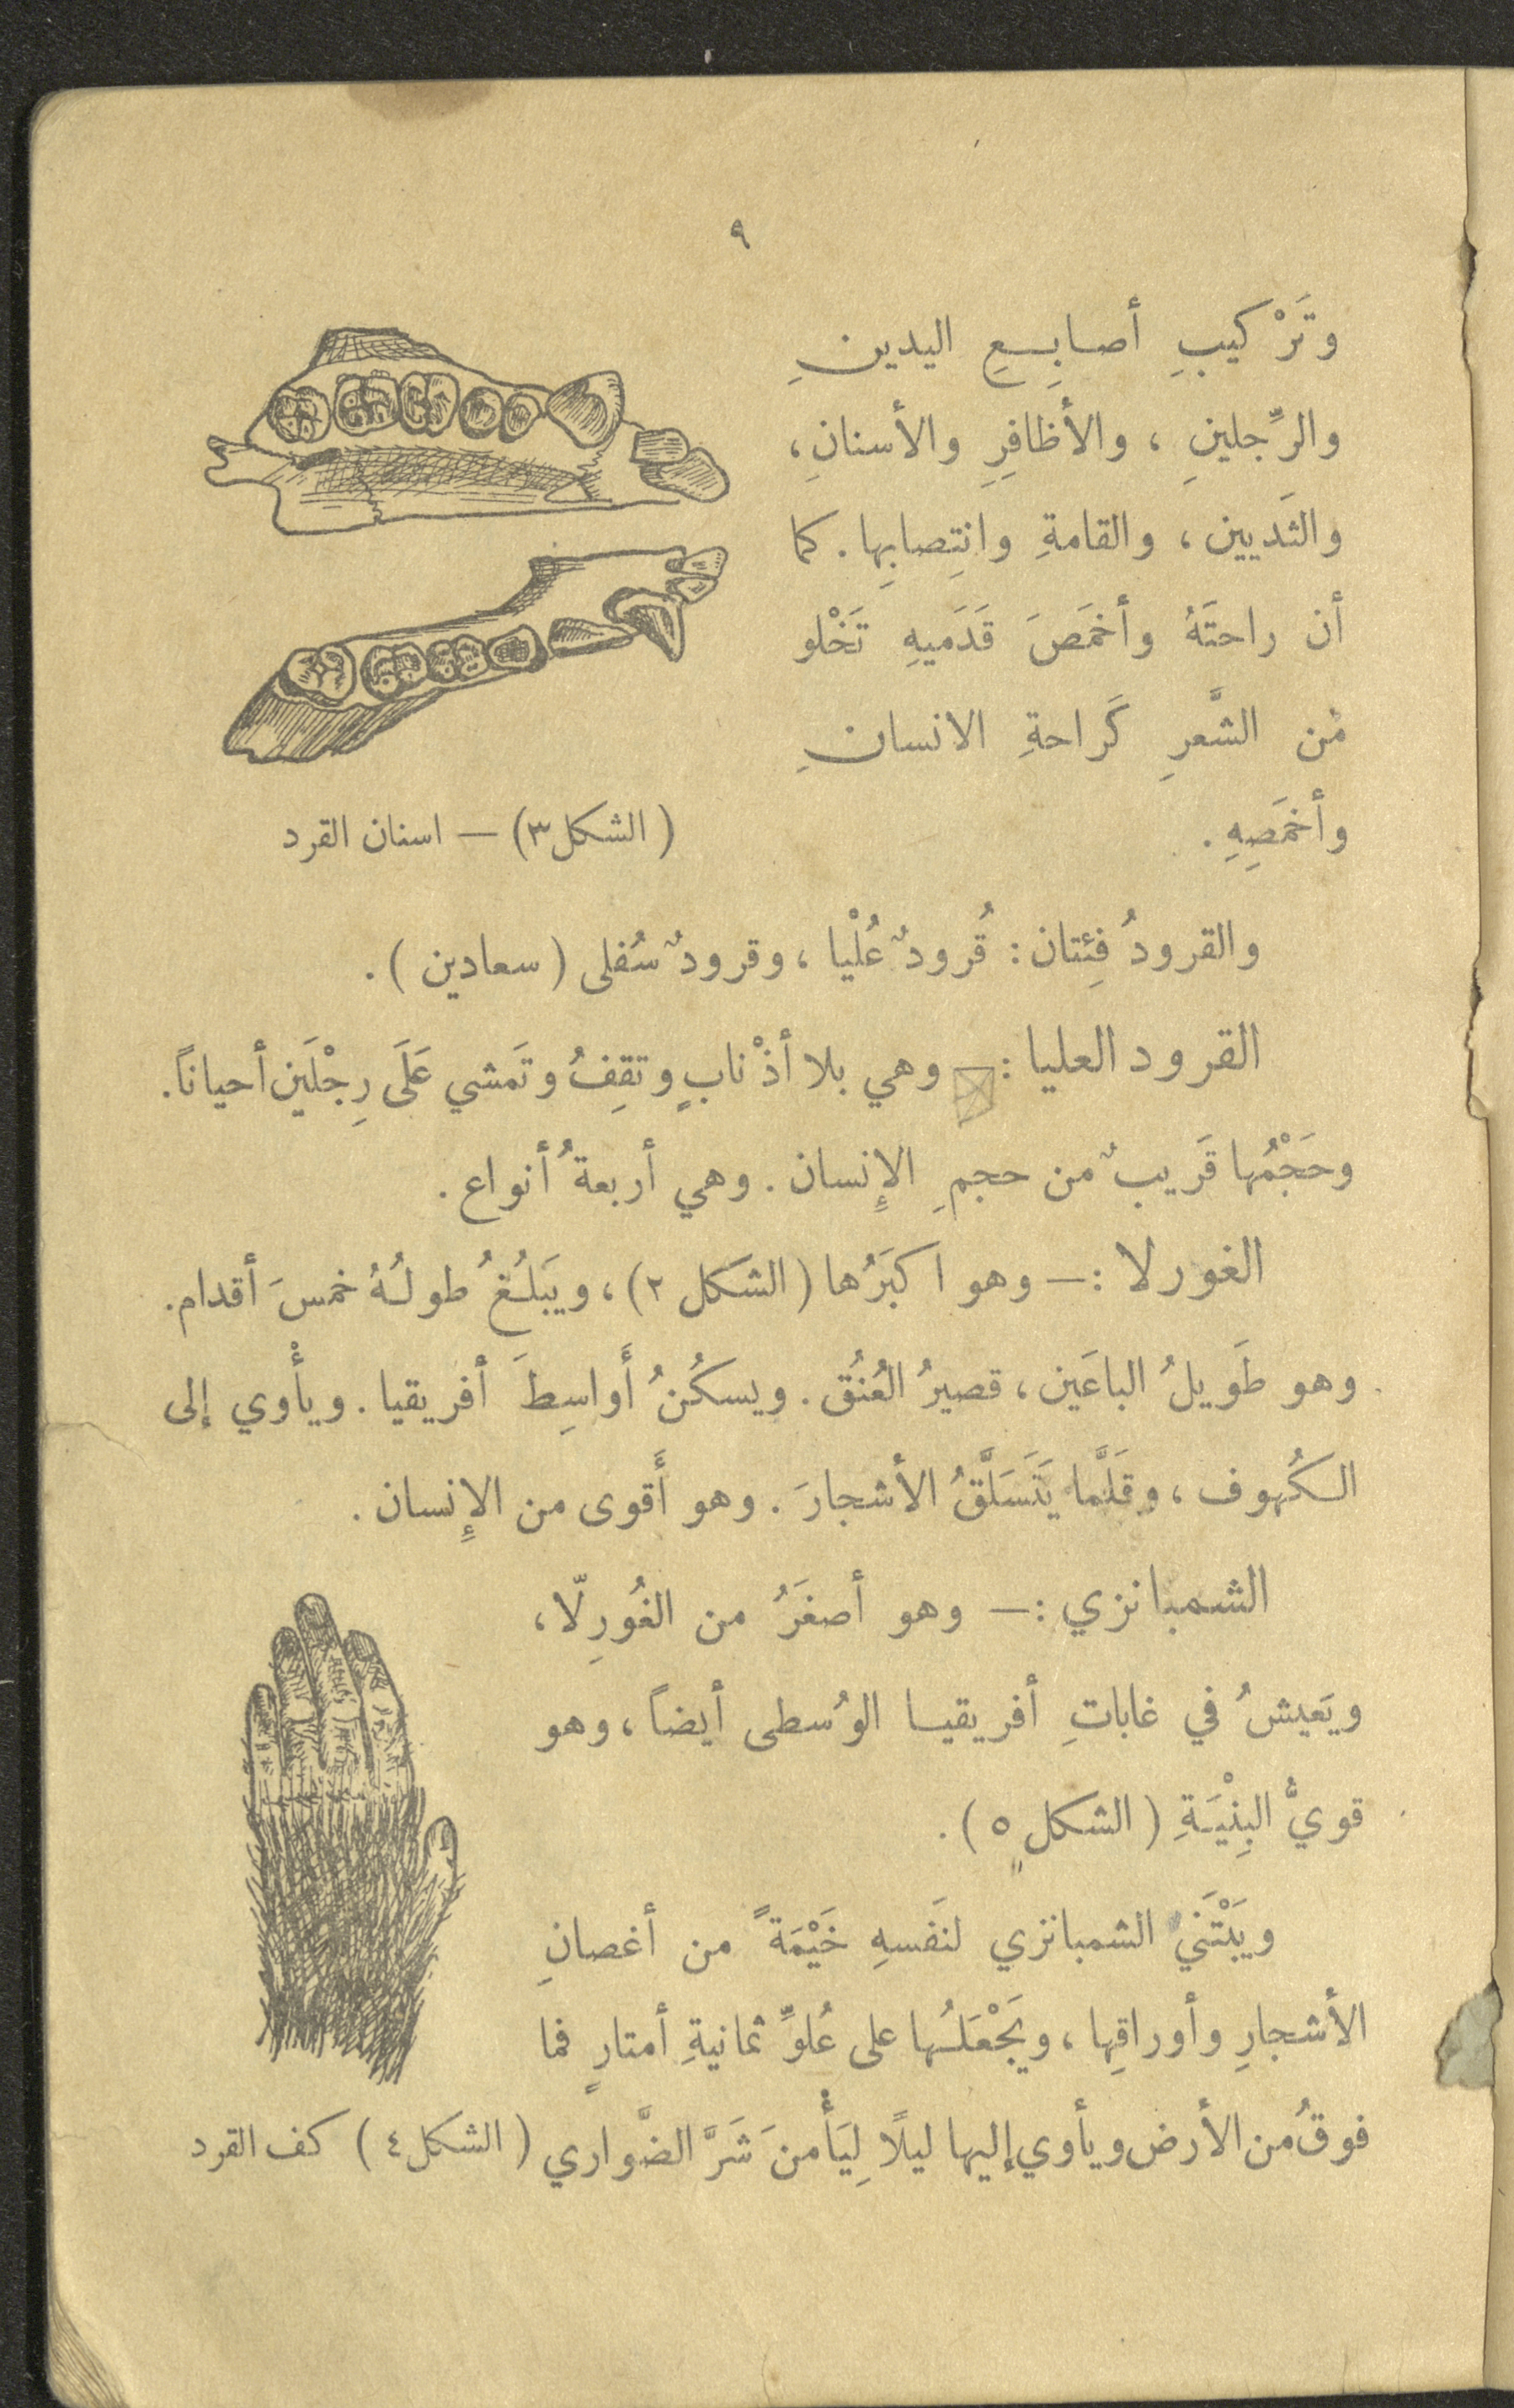 ٩
وتَرْكيبِ أصابِعِ اليدينِ
والرِّجلينِ ، والأظافِرِ والأسنانِ ،
والثَديين ، والقامةِ وانتِصابِها . كما
أن راحتَهُ وأخمَصَ قَدَميهِ تَخْلو
مْن الشَّعرِ كَراحةِ الانسانِ
وأخمَصِهِ .
( الشكل ٣ ) — اسنان القرد
والقرودُ فِئتان : قُرودٌ عُلْيا ، وقرودٌ سُفلى ( سعادين ) .
القرود العليا :— وهي بلا أذْنابٍ وتقِفُ وتَمشي عَلَى رِجْلَين أحياناً .
وحَجْمُها قَريبٌ من حجمِ الإِنسان . وهي أربعةُ أنواع .
الغورلا :— وهو اكبَرُها ( الشكل ٢ ) ، ويَبلُغُ طولُهُ خمسَ أقدام .
وهو طَويلُ الباعَين ، قصيرُ العُنُق . ويسكُنُ أَواسِطَ أفريقيا . ويأْوي إلى
الكُهوف ، وقَلَّما يَتَسَلَّقُ الأشجارَ . وهو أَقوى من الإِنسان .
الشمبانزي :— وهو أصغَرُ من الغُورِلّا ،
ويَعيشُ في غاباتِ أفريقيا الوُسطى أيضاً ، وهو
قويُّ البِنْيَةِ ( الشكل ٥ ) .
ويَبْتَني الشمبانزي لنَفسهِ خَيْمَةً من أغصانِ
الأشجارِ وأوراقِها ، ويَجْعَلُها على عُلوِّ ثمانيةِ أمتارٍ فما
فوقُ من الأرض ويأوي إليها ليلًا لِيَأْمنَ شَرَّ الضَّواري
( الشكل ٤ ) كف القرد